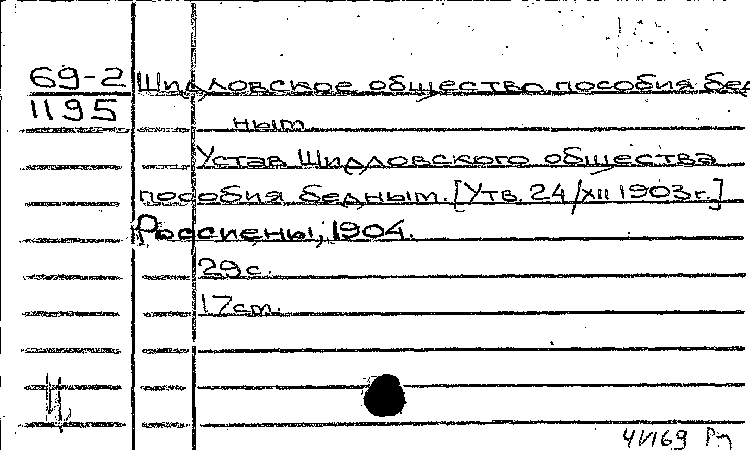 69-2 Шидловское общество пособия бед
1195 ным.
Устав Шидловского общества
пособия бедным. [Утв. 24/XII 1903г.]
Россиены, 1904.
29с.
17см.